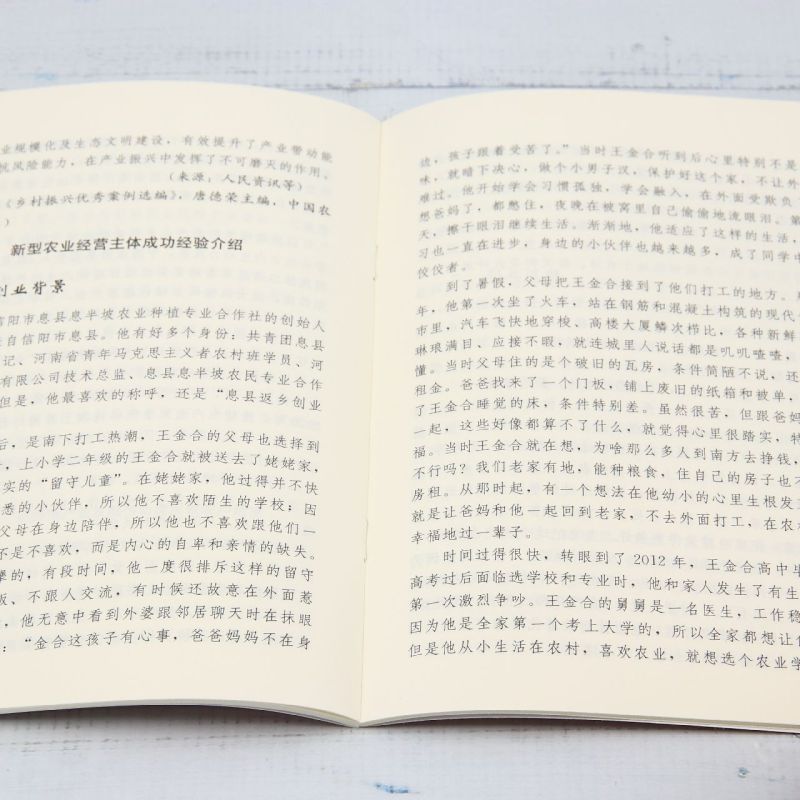 业规模化及生态文明建设，有效提升了产业带动能
抗风险能力，在产业振兴中发挥了不可磨灭的作用。
（来源：人民资讯等）
《乡村振兴优秀案例选编》，唐德荣主编，中国农
）
新型农业经营主体成功经验介绍
创业背景
信阳市息县息半坡农业种植专业合作社的创始人
自信阳市息县。他有好多个身份：共青团息县
记、河南省青年马克思主义者农村班学员、河
有限公司技术总监、息县息半坡农民专业合作
但是，他最喜欢的称呼，还是“息县返乡创业
后，是南下打工热潮，王金合的父母也选择到
，上小学二年级的王金合就被送去了姥姥家，
实的“留守儿童”。在姥姥家，他过得并不快
悉的小伙伴，所以他不喜欢陌生的学校；因
父母在身边陪伴，所以他也不喜欢跟他们一
不是不喜欢，而是内心的自卑和亲情的缺失。
的，有段时间，他一度很排斥这样的留守
、不跟人交流，有时候还故意在外面惹
，他无意中看到外婆跟邻居聊天时在抹眼
：“金合这孩子有心事，爸爸妈妈不在身
边，孩子跟着受苦了。”当时王金合听到后心里特别不是
味，就暗下决心，做个小男子汉，保护好这个家，不让外
难过。他开始学会习惯孤独，学会融入，在外面受欺负
想爸妈了，都憋住，夜晚在被窝里自己偷偷地流眼泪。第
天，擦干眼泪继续生活。渐渐地，他适应了这样的生活，
习也一直在进步，身边的小伙伴也越来越多，成了同学中
佼佼者。
到了暑假，父母把王金合接到了他们打工的地方。那
年，他第一次坐了火车，站在钢筋和混凝土构筑的现代
市里，汽车飞快地穿梭、高楼大厦鳞次栉比，各种新鲜
琳琅满目、应接不暇，就连城里人说话都是叽叽喳喳，
懂。当时父母住的是个破旧的瓦房，条件简陋不说，还
租金。爸爸找来了一个门板，铺上废旧的纸箱和被单，
了王金合睡觉的床，条件特别差。虽然很苦，但跟爸妈
一起，这些好像都算不了什么，就觉得心里很踏实，特
福。当时王金合就在想，为啥那么多人到南方去挣钱，
不行吗？我们老家有地，能种粮食，住自己的房子也不
房租。从那时起，有一个想法在他幼小的心里生根发
就是让爸妈和他一起回到老家，不去外面打工，在农村
幸福地过一辈子。
时间过得很快，转眼到了2012年，王金合高中毕
高考过后面临选学校和专业时，他和家人发生了有生
第一次激烈争吵。王金合的舅舅是一名医生，工作稳
因为他是全家第一个考上大学的，所以全家都想让他
但是他从小生活在农村，喜欢农业，就想选个农业学